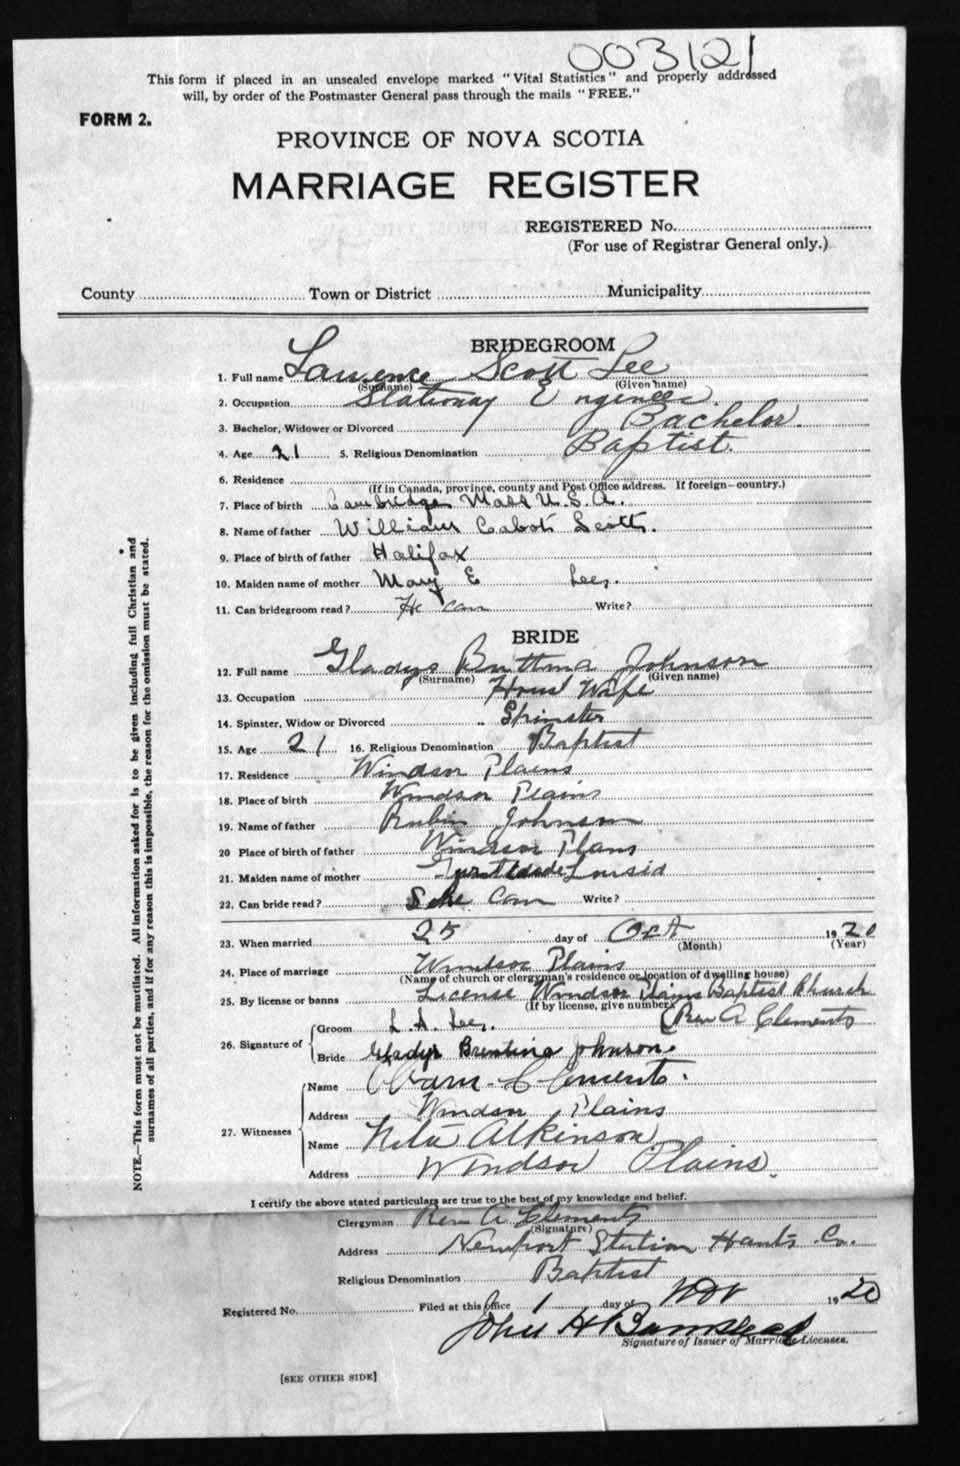 003121
This form if placed in an unsealed envelope marked "Vital Statistics" and properly addressed
will, by order of the Postmaster General pass through the mails "FREE."
FORM 2.
PROVINCE OF NOVA SCOTIA
MARRIAGE REGISTER
REGISTERED No.
(For use of Registrar General only.)
County Town or District Municipality
BRIDEGROOM
1. Full name Lawrence Scott Lee
(Surname) (Given name)
2. Occupation Stationay Engineer.
3. Bachelor, Widower or Divorced Bachelor.
4. Age 21 5. Religious Denomination Baptist.
6. Residence
(If in Canada, province, county and Post Office address. If foreign—country.)
7. Place of birth Cambridge Mass U.S.A.
8. Name of father William Cabot Scott.
9. Place of birth of father Halifax
10. Maiden name of mother Mary E Lee.
11. Can bridegroom read? He can Write?
BRIDE
12. Full name Gladys Johnson
(Surname) (Given name)
13. Occupation House Wife
14. Spinster, Widow or Divorced Spinster
15. Age 21 16. Religious Denomination Baptist
17. Residence Windsor Plains
18. Place of birth Windsor Plains
19. Name of father Rubin Johnson
20 Place of birth of father Windsor Plans
21. Maiden name of mother
22. Can bride read? She Can Write?
23. When married 25 day of Oct 1920
(Month) (Year)
24. Place of marriage Windsor Plains
(Name of church or clergyman's residence or location of dwelling house)
25. By license or banns License Windsor Plains Baptist Church
(If by license, give number) (Rev A Clements
26. Signature of Groom L. S. Lee.
Bride Gladys Brentina Johnson.
27. Witnesses Name Clements.
Address Windsor Plains
Name Nita Atkinson
Address Windsor Plains.
I certify the above stated particulars are true to the best of my knowledge and belief.
Clergyman Rev A Clements
(Signature)
Address Newport Station Hants Co.
Religious Denomination Baptist
Registered No. Filed at this office 1 day of Nov 1920
John H
Signature of Issuer of Marriage Licenses.
[SEE OTHER SIDE]
NOTE.—This form must not be mutilated. All information asked for is to be given including full Christian and
surnames of all parties, and if for any reason this is impossible, the reason for the emission must be stated.